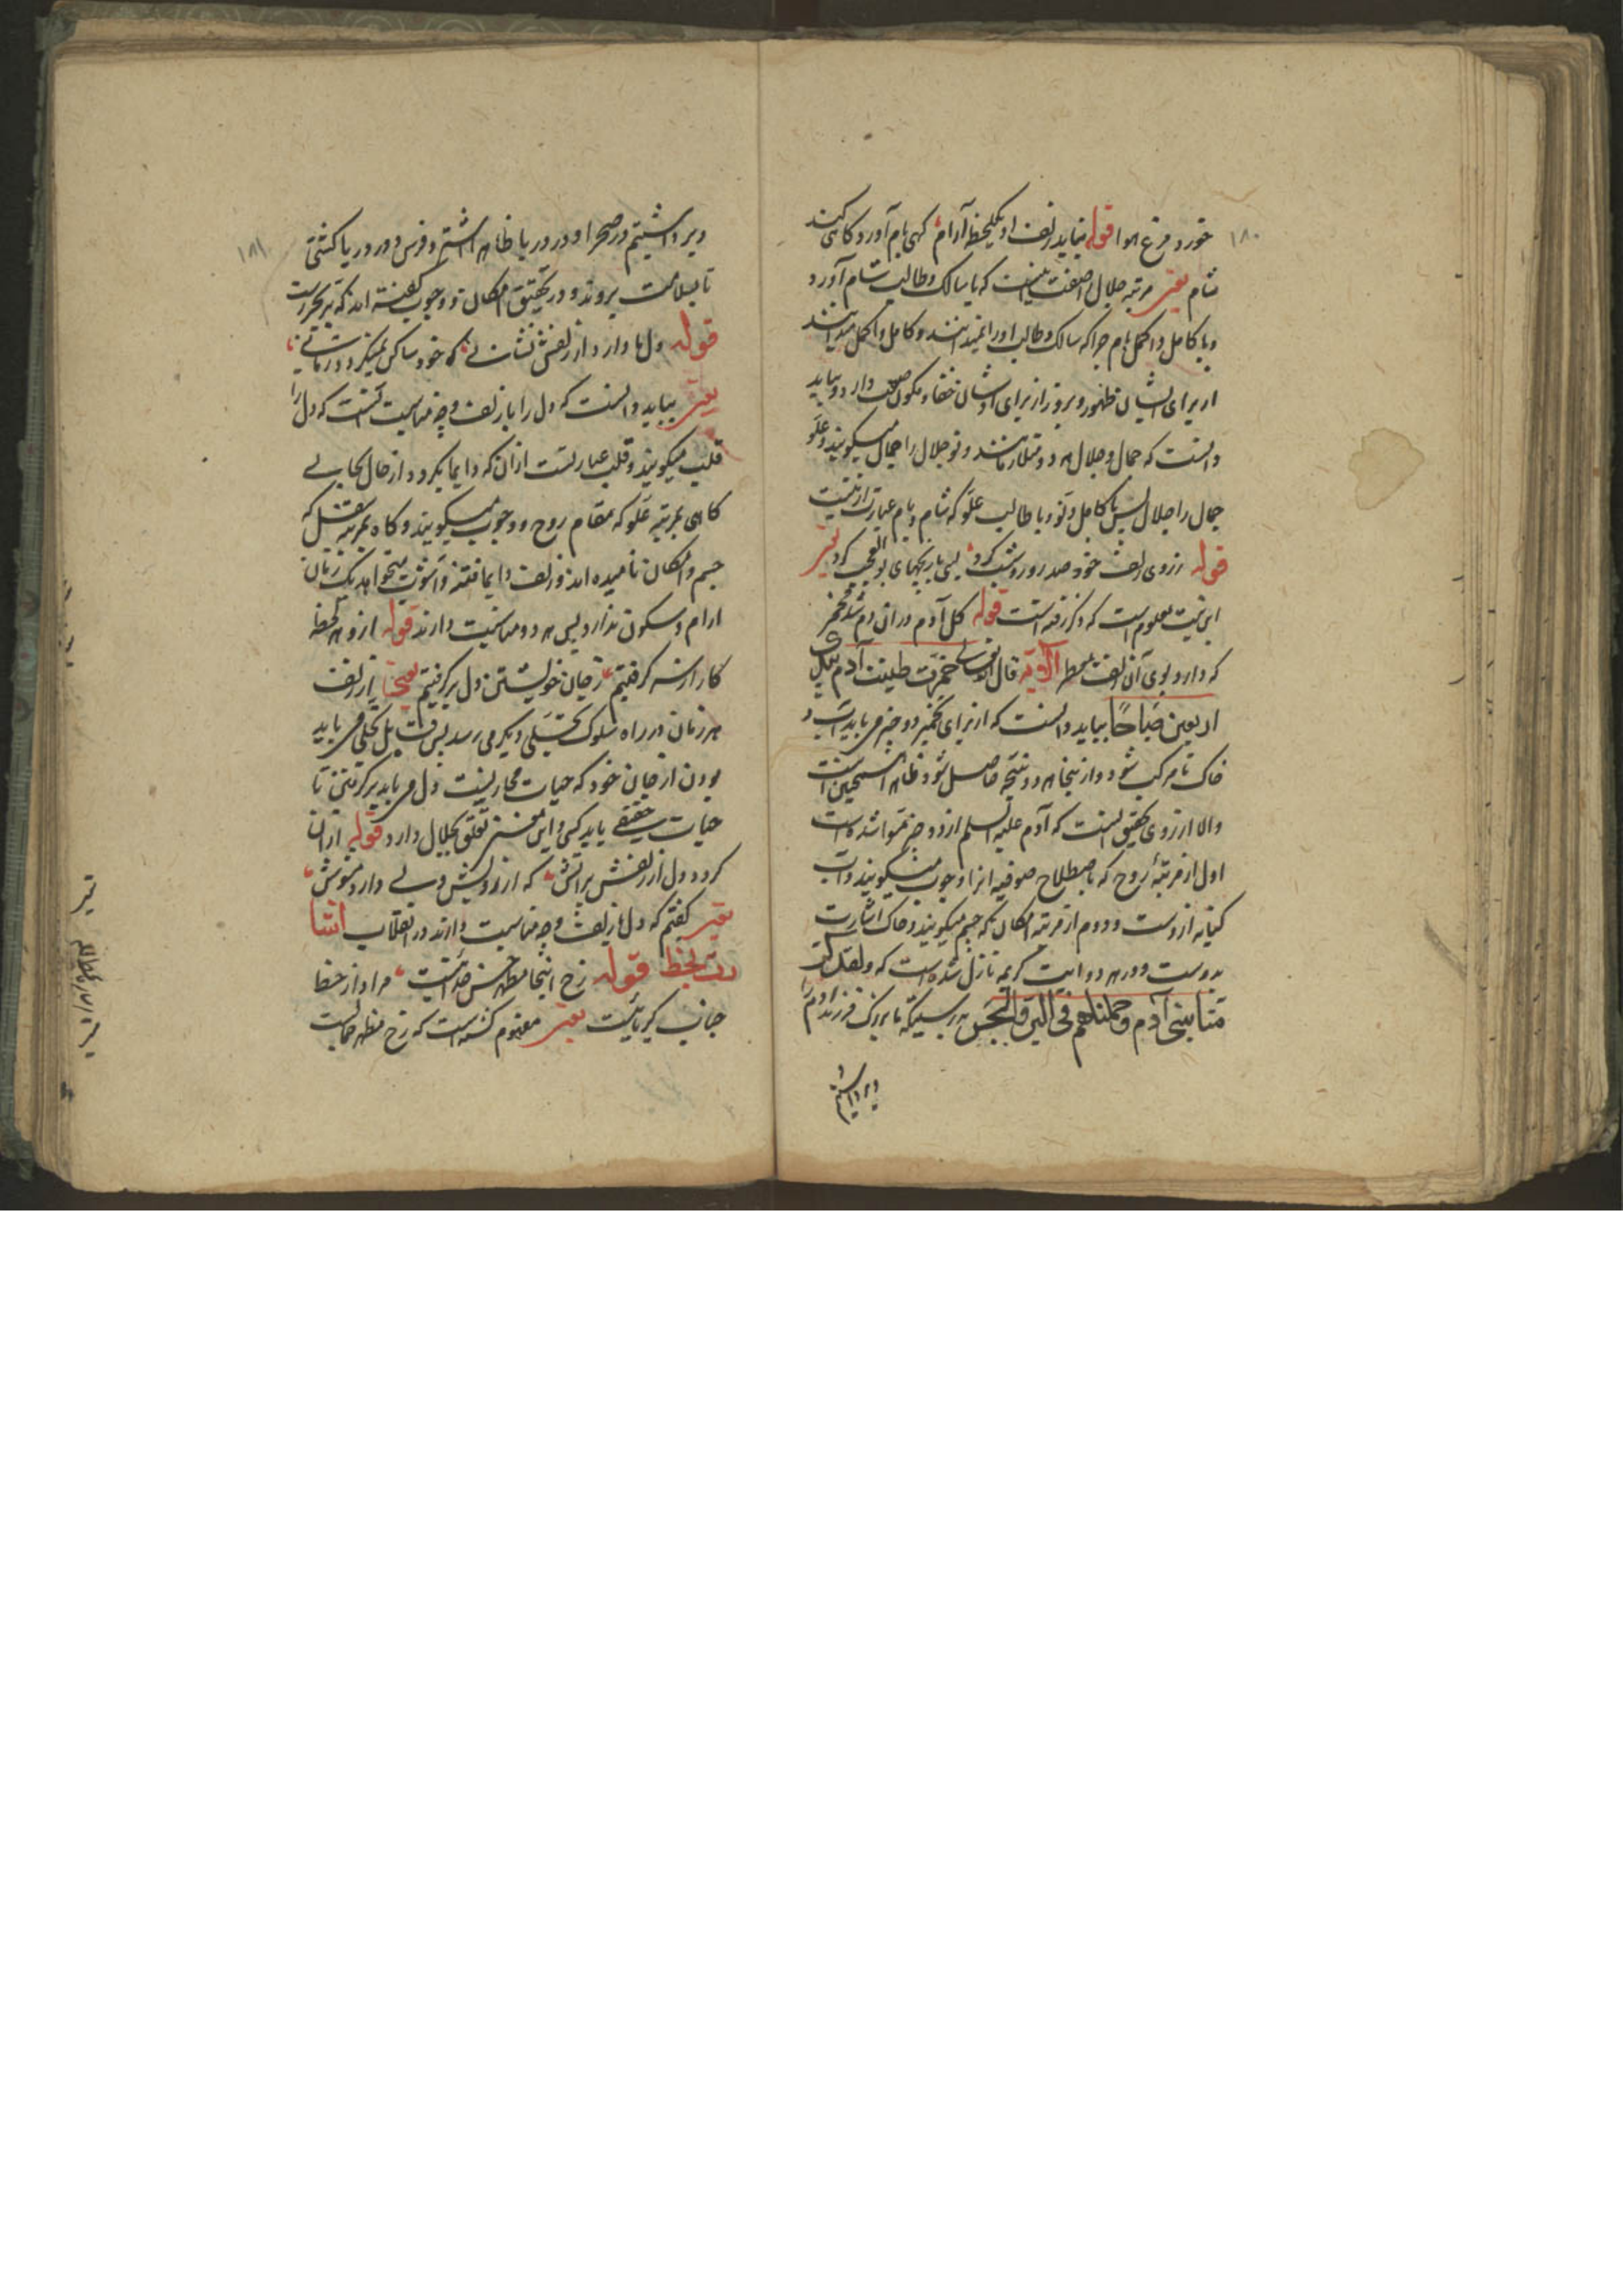 ۱۸۰
خورد مرغ هوا قوله نیابد زلف او یکلحظه آرام کهی بام آورد کاهی کند
شام یعنی مرتبه جلال صفت اینست که با سالک و طالب شام آورد
و با کامل و اکمل بام چرا که سالک و طالب او را نمیدانند و کامل و اکمل میدانند
از برای ایشان ظهور و بروز از برای اوشان خفا و کمون دارد و بباید
دانست که جمال و جلال هر دو متلازمانند و تو جلال را جمال میگویند و علو
جمال را جلال پس با کامل و با طالب علو که شام و بام عبارت ازینست
قوله ز روی زلف خود صد روز و شب کرد بسی بازیچهای بوالعجب کرد یعنی
این بیت معلوم است که ذکر رفته است قوله کل آدم در آن دم شد مخمر
که دارد بوی آن زلف معطر الآیة قال الله تعالی خمرت طینت آدم بیدی
اربعین صباحا بباید دانست که از برای تخمیر دو چیز می باید آب و
خاک تا مرکب شود و از اینجا هر دو نتیجه حاصل شود ظاهرش همچنین است
والا از روی تحقیق اینست که آدم علیه السلم از دو چیز شده است
اول از مرتبهٔ روح که باصطلاح صوفیه انرا وجوب میگویند و آب
کنایه ازوست و دوم از مرتبه امکان که جسم میگویند و خاک اشارت
بدوست و در هر دو ایت کریمه نازل شده است که ولقد کر
منا بنی آدم وحملناهم فی البر والبحر بدرستیکه ما بزرک فرزند آدم را
و برداشتیم
۱۸۱
و برداشتیم در صحرا و در دریا ظاهر اشتر و فرس و در دریا کشتی
تا بسلامت بروند و در تحقیق امکان و وجوب گفته اند که بر بحر است
قوله دل ما دارد از زلفش نشانی که خود ساکن نمیکردد زمانی
یعنی بباید دانست که دل را با زلف وجه مناسبت اینست که دل را
قلب میگویند و قلب عبارتست از آن که دایما بکردد از حال بحالی
کاهی بمرتبه علو که مقام روح و وجوب میگویند و کاه بمرتبه سفل که
جسم و امکان نامیده اند و زلف دایما فتنه و آشوب میخواهد یک زمان
ارام و سکون ندارد پس هر دو مناسبت دارند قوله ازو هر لحظه
کار از سر کرفتیم ز جان خویشتن دل بر کرفتیم یعنی از زلف
هر زمان در راه سلوک تجلی دیکر می رسد پس قابل تجلی می باید
بودن از جان خود که حیات مجازیست دل می باید بر کرفتن تا
حیات حقیقی یابد کسی و این معنی تعلق بجلال دارد قوله از آن
کردد دل از زلفش براتش که از رویش دلی دارد مشوش
یعنی گفتم که دل با زلف وجه مناسبت دارند در انقلاب اشا
رت بخط قوله رخ اینجا مظهر حسن خدائیست مراد از خط
جناب کبریائیست یعنی مفهوم کشته است که رخ مظهر جمالست